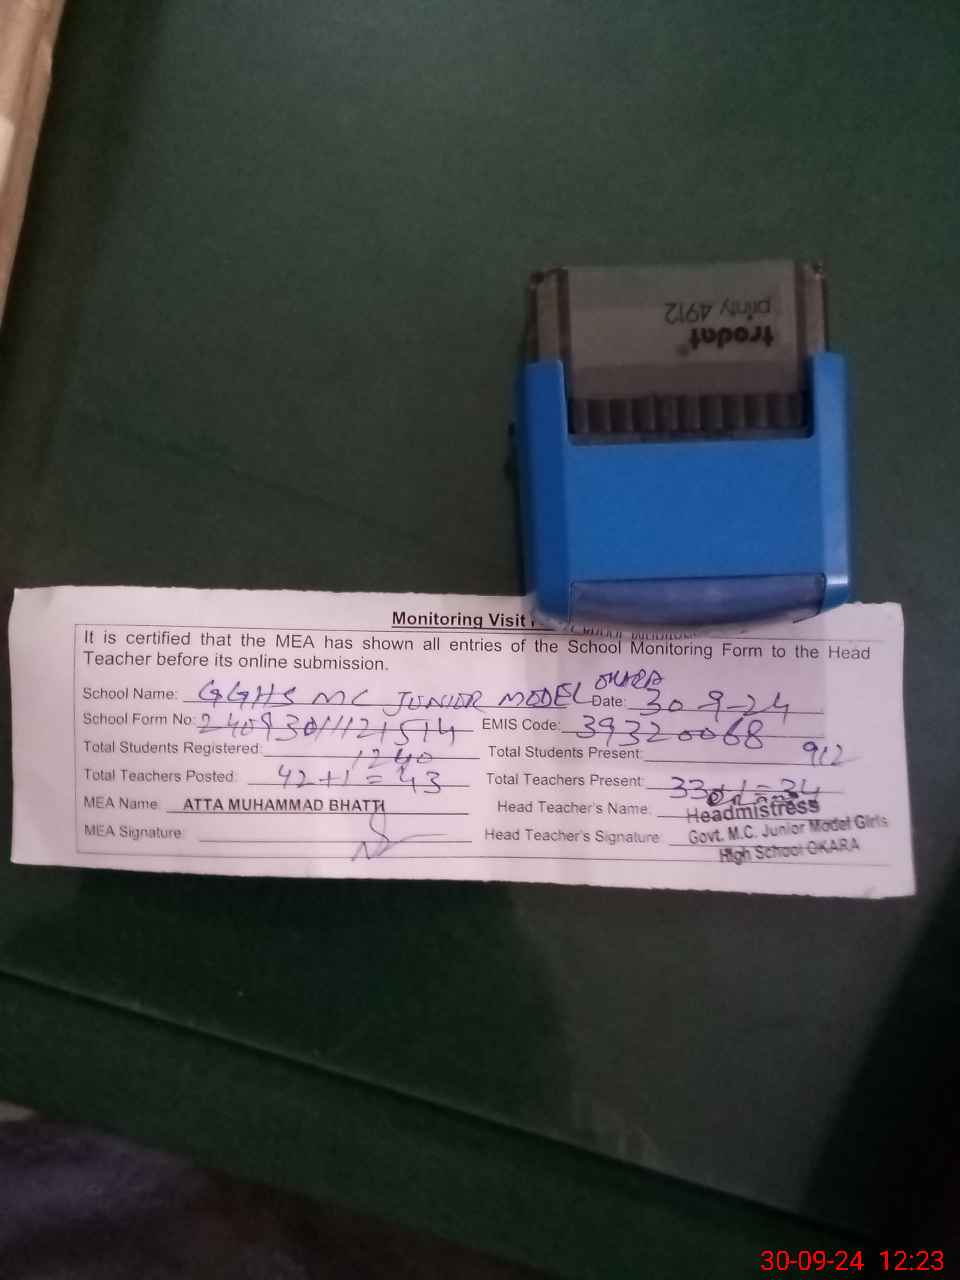 trodat®
printy 4912
Monitoring Visit
It is certified that the MEA has shown all entries of the School Monitoring Form to the Head
Teacher before its online submission.
School Name: GGHS MC JUNIOR MODEL OKARA Date: 30-9-24
School Form No: EMIS Code: 39320068
Total Students Registered: 1240 Total Students Present: 912
Total Teachers Posted: 42+1=43 Total Teachers Present: 33+1=34
MEA Name: ATTA MUHAMMAD BHATTI Head Teacher's Name: Headmistress
MEA Signature: Head Teacher's Signature: Govt. M.C. Junior Model Girls
High School OKARA
30-09-24 12:23